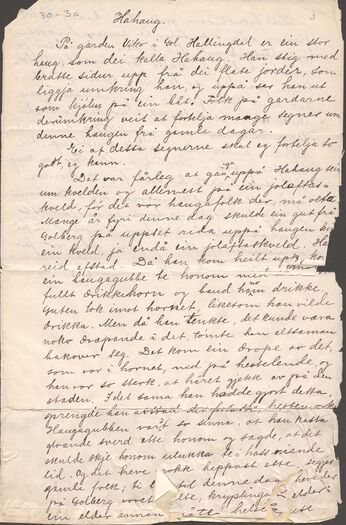 30-30
3
Hahaug.
På garden Viko i Gol Hallingdal er ein stor
haug, som dei kalla Hahaug. Han stig med
bratte sidur upp frå dei flate jorder, som
liggja umkring han, og uppå ser han ut
som kjølen på ein båt. Folk på gardane
derumkring veit at fortelja mange segner um
denne haugen frå gamle dagar.
Ei af detta segnerne skal eg fortelja to
godt eg kann.
Det var fårleg at gå uppå Hahaug sein
um kvelden og allermest på ein jolaftas-
kveld, for der var haugafolk der, må veta
Mange år fyri denne dag skulde ein gut frå
Golberg på uppset rida uppå haugen
ein kveld, ja endå ein jolaftaskveld. Han
reid afstad. Då han kom heilt upp, kom
ein haugagubbe te honom med
fullt drikkehorn og baud han drikke.
Guten tok imot hornet, liksom han vilde
drikka. Men då han tenkte, det kunde væra
noko drapande i det, tømte han altsaman
bakover seg. Det kom ein drope av det,
som var i hornet, ned på hestelende, og
han var so sterk, at håret gjekk av på den
staden. I det sama han hadde gjort detta,
sprengde han afstad
Haugagubben vart so sinna, at han kasta
gloande sverd efte honom og sagde, at det
skulde skje honom ulukka te i hass
tid. Og det heve heppast ette, segjer
gamle folk, ti til denne dag heve der
på Golberg voret kryplinga elder
ein elder annen måte